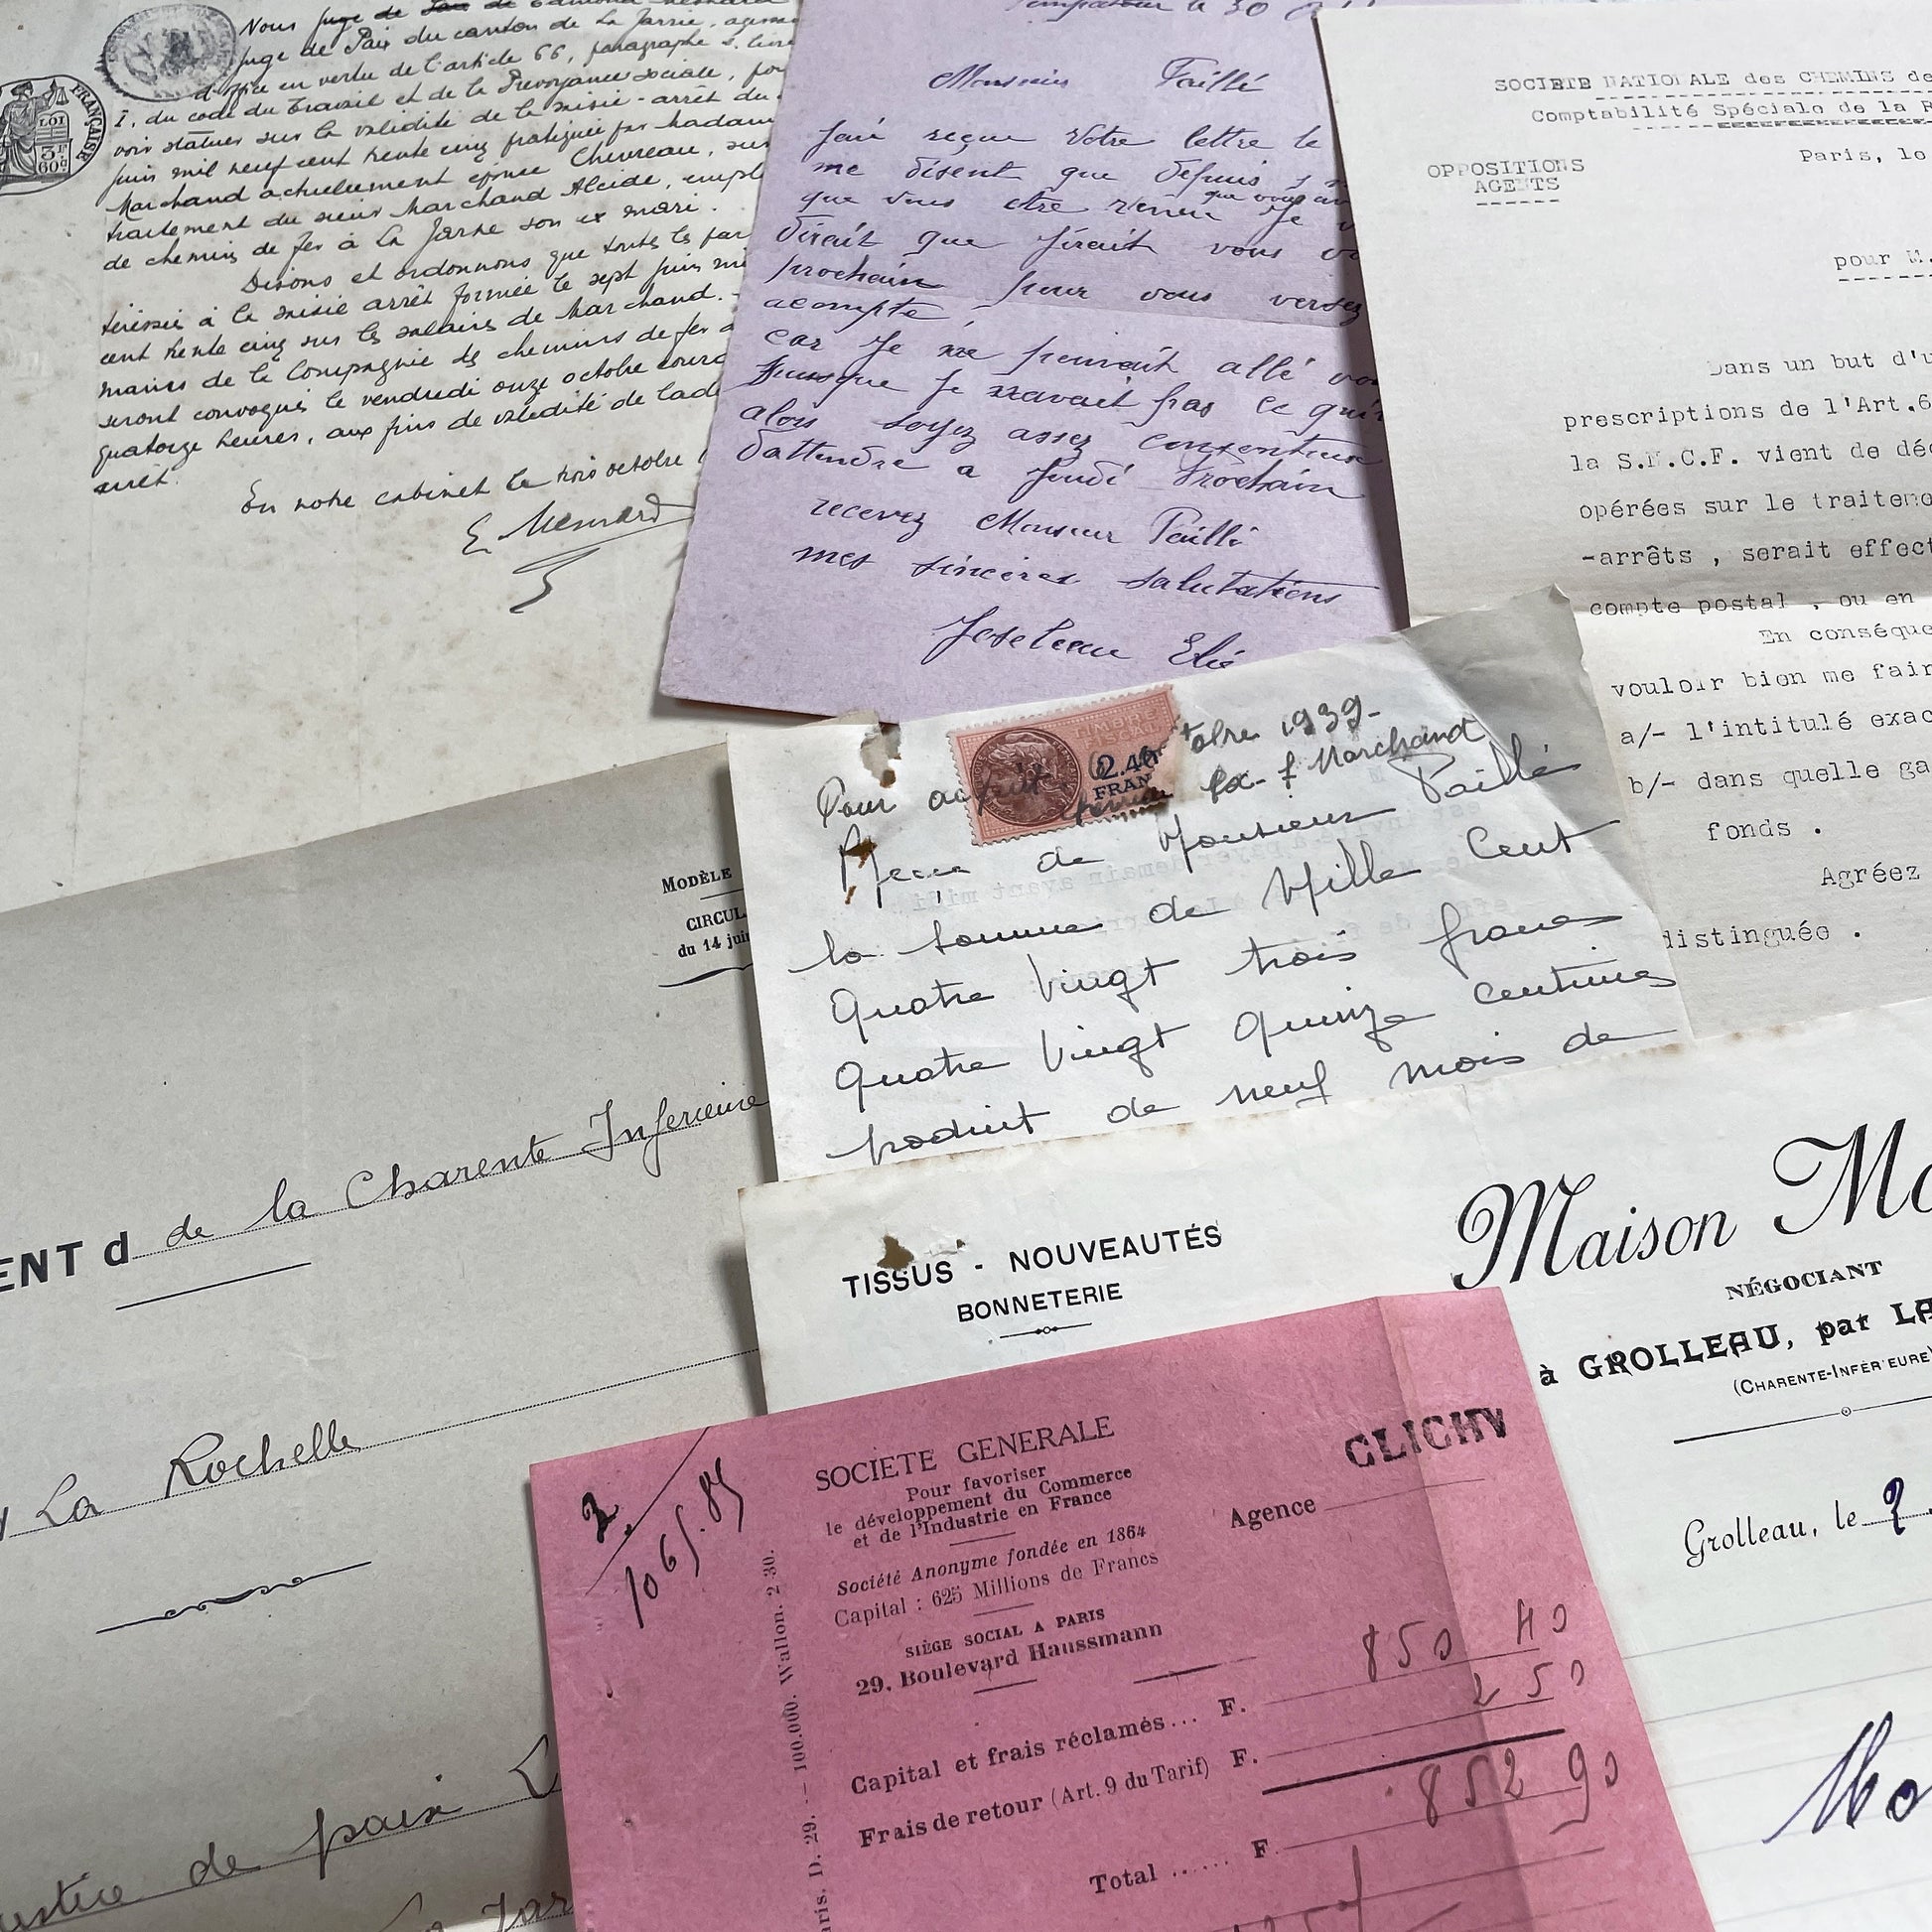 Nous juge de
juge de Paix du canton de La Jarrie, agissant
d'office en vertu de l'article 66, paragraphe 2, livre
I, du code du Travail et de la Prévoyance sociale, pour
voir statuer sur la validité de la saisie-arrêt du
juin mil neuf cent trente cinq pratiquée par Madame
Marchand actuellement épouse Chevreau, sur
traitement du sieur Marchand Alcide, empl
de chemins de fer à La Jarne son ex mari.
Disons et ordonnons que toutes les par
téressées à la saisie arrêt formée le sept juin mil
cent trente cinq sur les salaires de Marchand.-
mains de la Compagnie des chemins de fer
seront convoqués le vendredi onze octobre courant
quatorze heures, aux fins de validité de ladite
arrêt.
En notre cabinet le trois octobre
E. Mesnard
FRANÇAISE
LOI
3F
60c
le 30
Monsieur Taillé
J'ai reçue votre lettre le
me disent que depuis
que vous
que vous etre venu Je
dirait que j'irait vous
prochain pour vous versez
acompte,
car Je ne pouvait allé
puisque Je n'avait pas ce qu'il
alors soyez assez consentieux
dattendre a Jeudi Prochain
recevez Monsieur Taillé
mes sincères salutations
Joseleau Elie
SOCIETE NATIONALE des CHEMINS de
Comptabilité Spéciale de la R
Paris, le
OPPOSITIONS
AGENTS
pour M.
Dans un but d'u
prescriptions de l'Art.6
la S.N.C.F. vient de déc
opérées sur le traiteme
-arrêts , serait effect
compte postal , ou en
En conséque
vouloir bien me fair
a/- l'intitulé exac
b/- dans quelle ga
fonds .
Agréez
distinguée .
Pour acquit
tobre 1939-
2.40
FRAN
Ex-f Marchand
Reçu de Monsieur Taillé
la somme de Mille Cent
Quatre Vingt trois francs
Quatre Vingt Quinze centimes
produit de neuf mois de
MODÈLE
CIRCUL
du 14 juin
ENT d de la Charente Inferieure
La Rochelle
ustice de paix
La Jar
TISSUS - NOUVEAUTÉS
BONNETERIE
Maison Mo
NÉGOCIANT
à GROLLEAU, par LA
(CHARENTE-INFÉRIEURE)
Grolleau, le 2
Mo
2.
1065.85
SOCIETE GENERALE
Pour favoriser
le développement du Commerce
et de l'Industrie en France
Société Anonyme fondée en 1864
Capital : 625 Millions de Francs
SIÈGE SOCIAL A PARIS
29, Boulevard Haussmann
CLICHY
Agence
Capital et frais réclamés... F. 850 40
Frais de retour (Art. 9 du Tarif) F. 2 50
Total ...... F. 852 90
aris. D. 29. — 100.000. Wallon. 2-30.